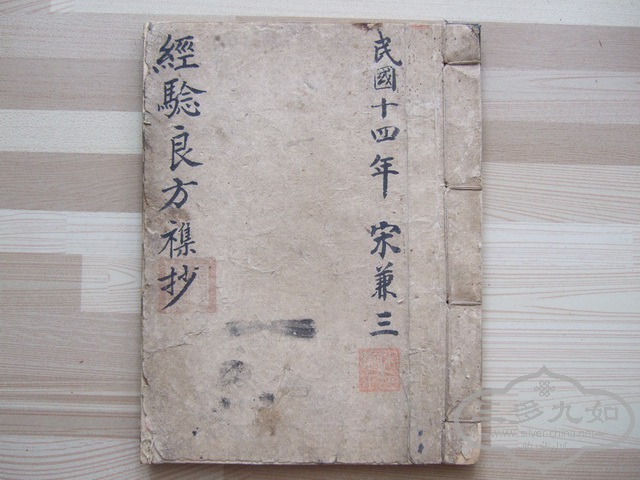 民國十四年 宋兼三
經驗良方襍抄
三多九如